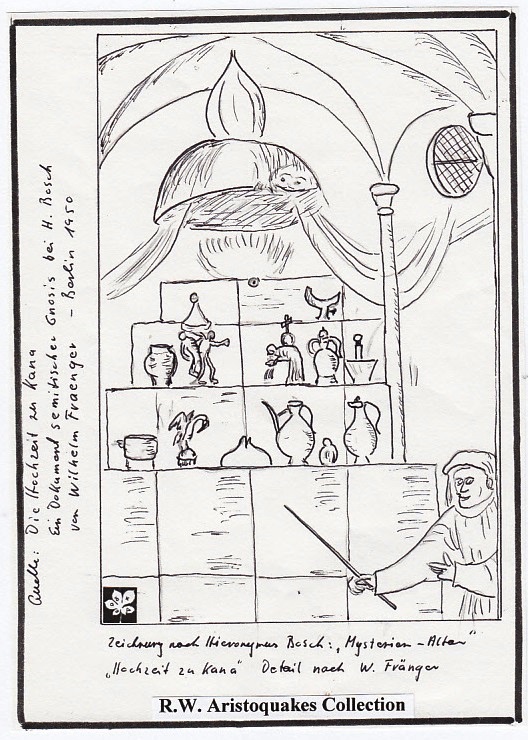 Quelle: Die Hochzeit zu Kana
Ein Dokument semitischer Gnosis bei H. Bosch
von Wilhelm Fraenger - Berlin 1950
Zeichnung nach Hieronymus Bosch: „Mysterien-Altar"
„Hochzeit zu Kana" Detail nach W. Fränger
R.W. Aristoquakes Collection